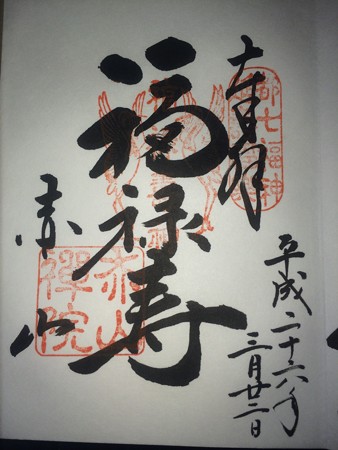 奉拝
都七福神
平成二十六年
三月廿二日
福禄寿
赤山
禅院
赤山